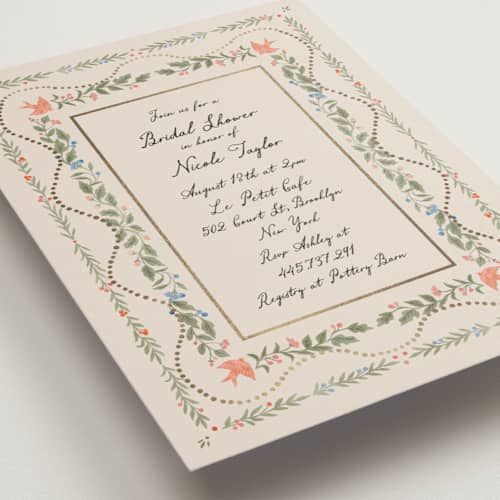 Join us for a
Bridal Shower
in honor of
Nicole Taylor
August 13th at 2pm
Le Petit Cafe
502 Court St, Brooklyn
New York
Rsvp Ashley at
445.737.291
Registry at Pottery Barn